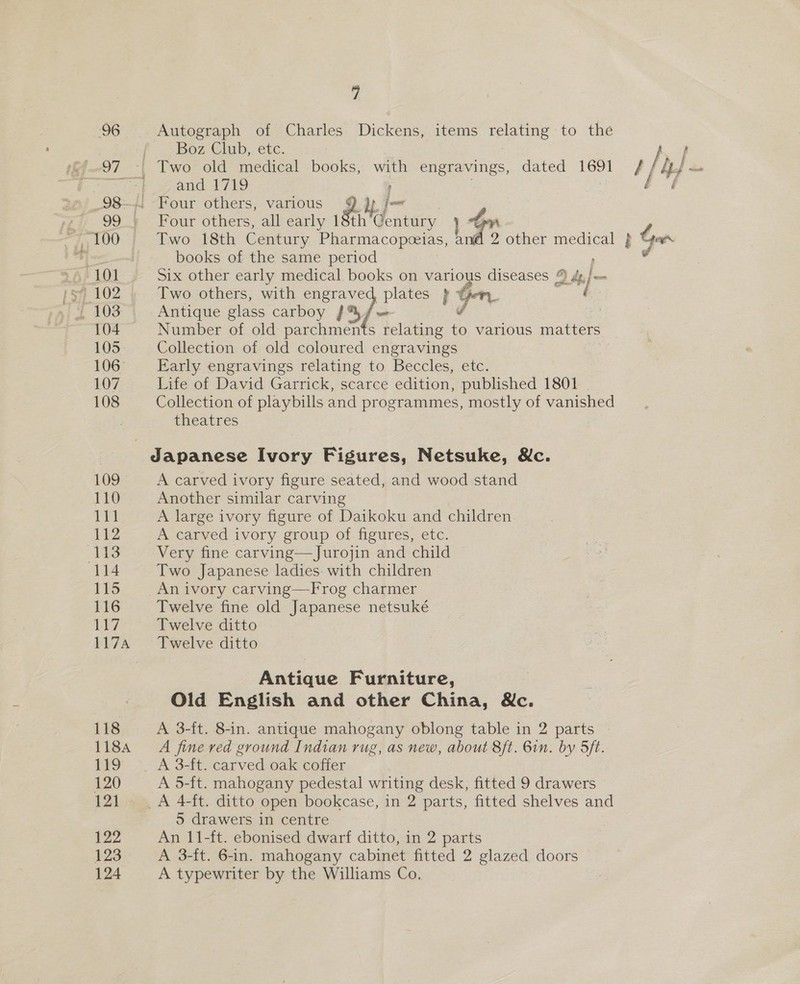 7
96 Autograph of Charles Dickens, items relating to the
Boz Club, etc.
97 Two old medical books, with engravings, dated 1691
and 1719
98 Four others, various
99 Four others, all early 18th Century
100 Two 18th Century Pharmacopœias, and 2 other medical
books of the same period
101 Six other early medical books on various diseases
102 Two others, with engraved plates
103 Antique glass carboy
104 Number of old parchments relating to various matters
105 Collection of old coloured engravings
106 Early engravings relating to Beccles, etc.
107 Life of David Garrick, scarce edition, published 1801
108 Collection of playbills and programmes, mostly of vanished
theatres
Japanese Ivory Figures, Netsuke, &c.
109 A carved ivory figure seated, and wood stand
110 Another similar carving
111 A large ivory figure of Daikoku and children
112 A carved ivory group of figures, etc.
113 Very fine carving—Jurojin and child
114 Two Japanese ladies with children
115 An ivory carving—Frog charmer
116 Twelve fine old Japanese netsuké
117 Twelve ditto
117A Twelve ditto
Antique Furniture,
Old English and other China, &c.
118 A 3-ft. 8-in. antique mahogany oblong table in 2 parts
118A A fine red ground Indian rug, as new, about 8ft. 6in. by 5ft.
119 A 3-ft. carved oak coffer
120 A 5-ft. mahogany pedestal writing desk, fitted 9 drawers
121 A 4-ft. ditto open bookcase, in 2 parts, fitted shelves and
5 drawers in centre
122 An 11-ft. ebonised dwarf ditto, in 2 parts
123 A 3-ft. 6-in. mahogany cabinet fitted 2 glazed doors
124 A typewriter by the Williams Co.